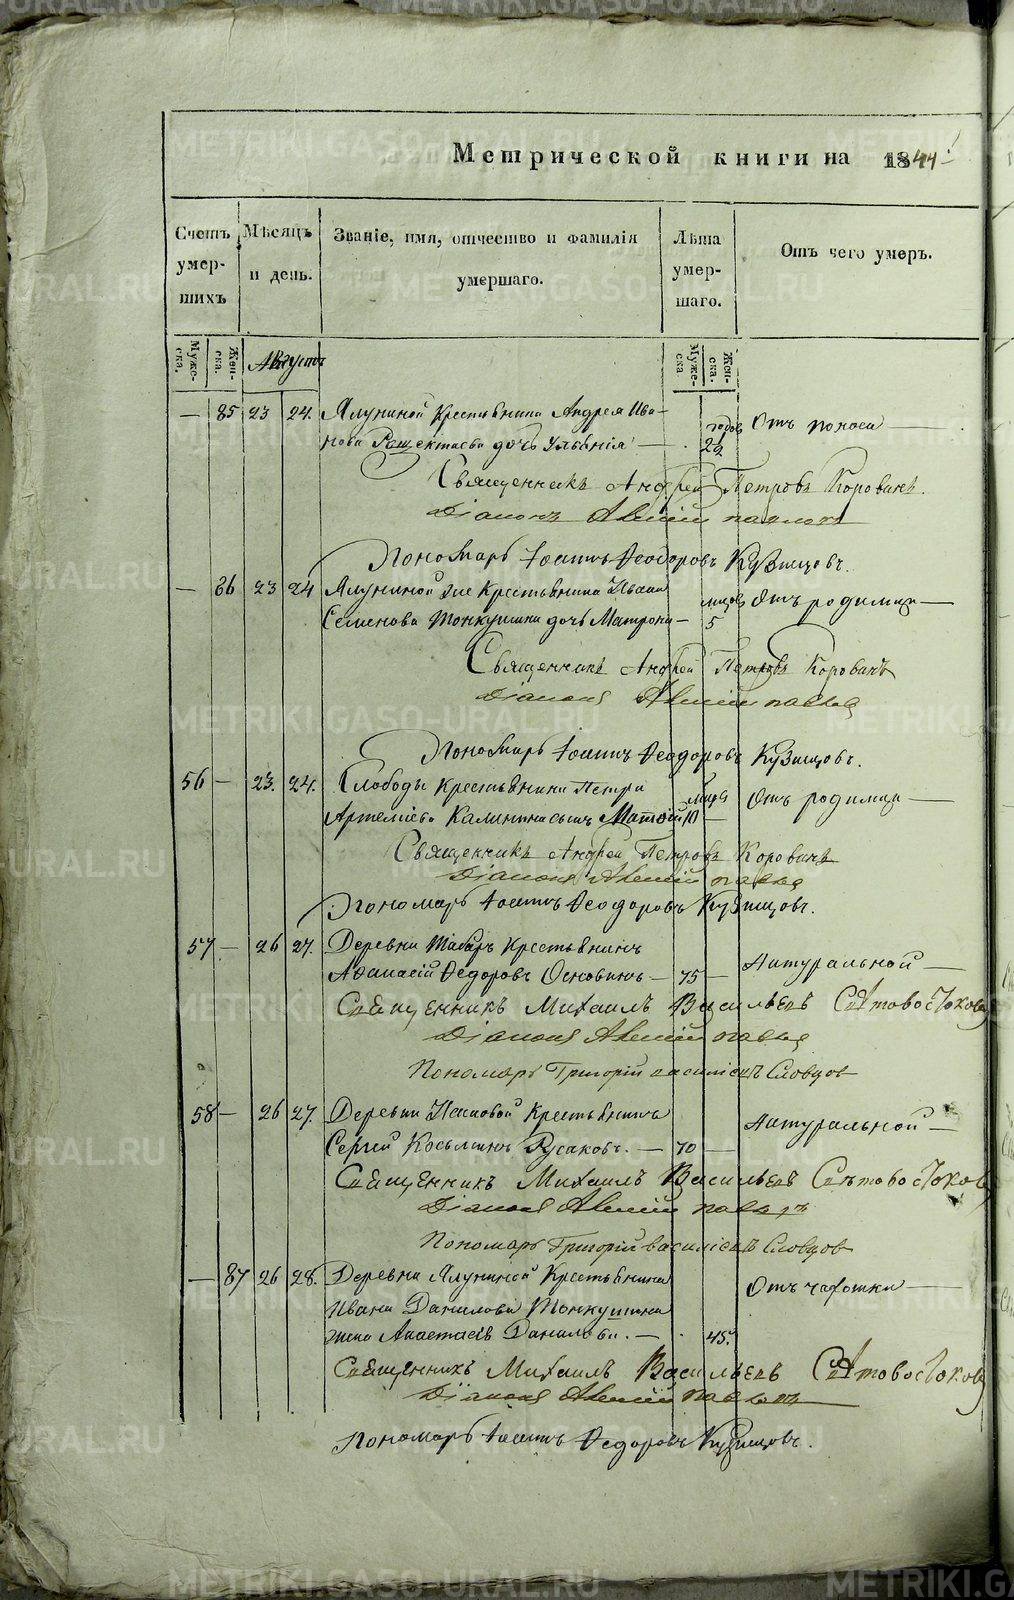 Метрической книги на 1844
Счетъ умер- шихъ
Мѣсяцъ и день.
Званіе, имя, отчество и фамилія умершаго.
Лѣта умер- шаго.
Отъ чего умеръ.
Муже- ска.
Жен- ска.
Августъ
Муже- ска
Жен- ска.
— 85 23 24. Ялуниной Крестьянина Андрея Ива-
нова дочь Ульянія — годов 2 Отъ поноса —
Священникъ Андрей Петровъ Корованъ.
Діаконъ
Пономарь Іоаннъ Феодоровъ Кузнецовъ.
— 86 23 24 Ялуниной же Крестьянина Ивана
Семенова Тонкушина дочь Матрона — 5 Отъ родимца —
Священникъ Андрей Петровъ Корованъ
Діаконъ
Пономарь Іоаннъ Феодоровъ Кузнецовъ.
56 — 23. 24. Слободы Крестьянина Петра
Артеміева Калинина сынъ Матвій 10 — Отъ родимца —
Священникъ Андрей Петровъ Корованъ
Діаконъ
Пономарь Іоаннъ Феодоровъ Кузнецовъ.
57 — 26 27. Деревни Крестьянинъ
Афанасій Федоровъ Основинъ — 75 — Натуральной —
Священникъ Михаилъ Васильевъ
Діаконъ
Пономарь Григорій Василіевъ Словцов
58 — 26 27. Деревни Крестьянинъ
Сергій Косьминъ Русаковъ. — 70 — Натуральной —
Священникъ Михаилъ Васильевъ
Діаконъ
Пономарь Григорій Василіевъ Словцов
— 87 26 28. Деревни Ялуниной Крестьянина
Ивана Данилова Тонкушина
жена Анастасія Данилова. — 45. Отъ чахотки —
Священникъ Михаилъ Васильевъ
Діаконъ
Пономарь Іоаннъ Федоровъ Кузнецовъ.
METRIKI.GASO-URAL.RU